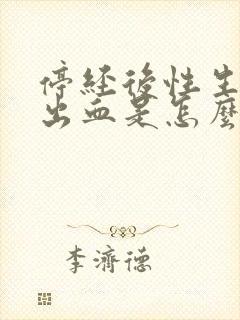 停經後性生
出血是怎麼
李濟德